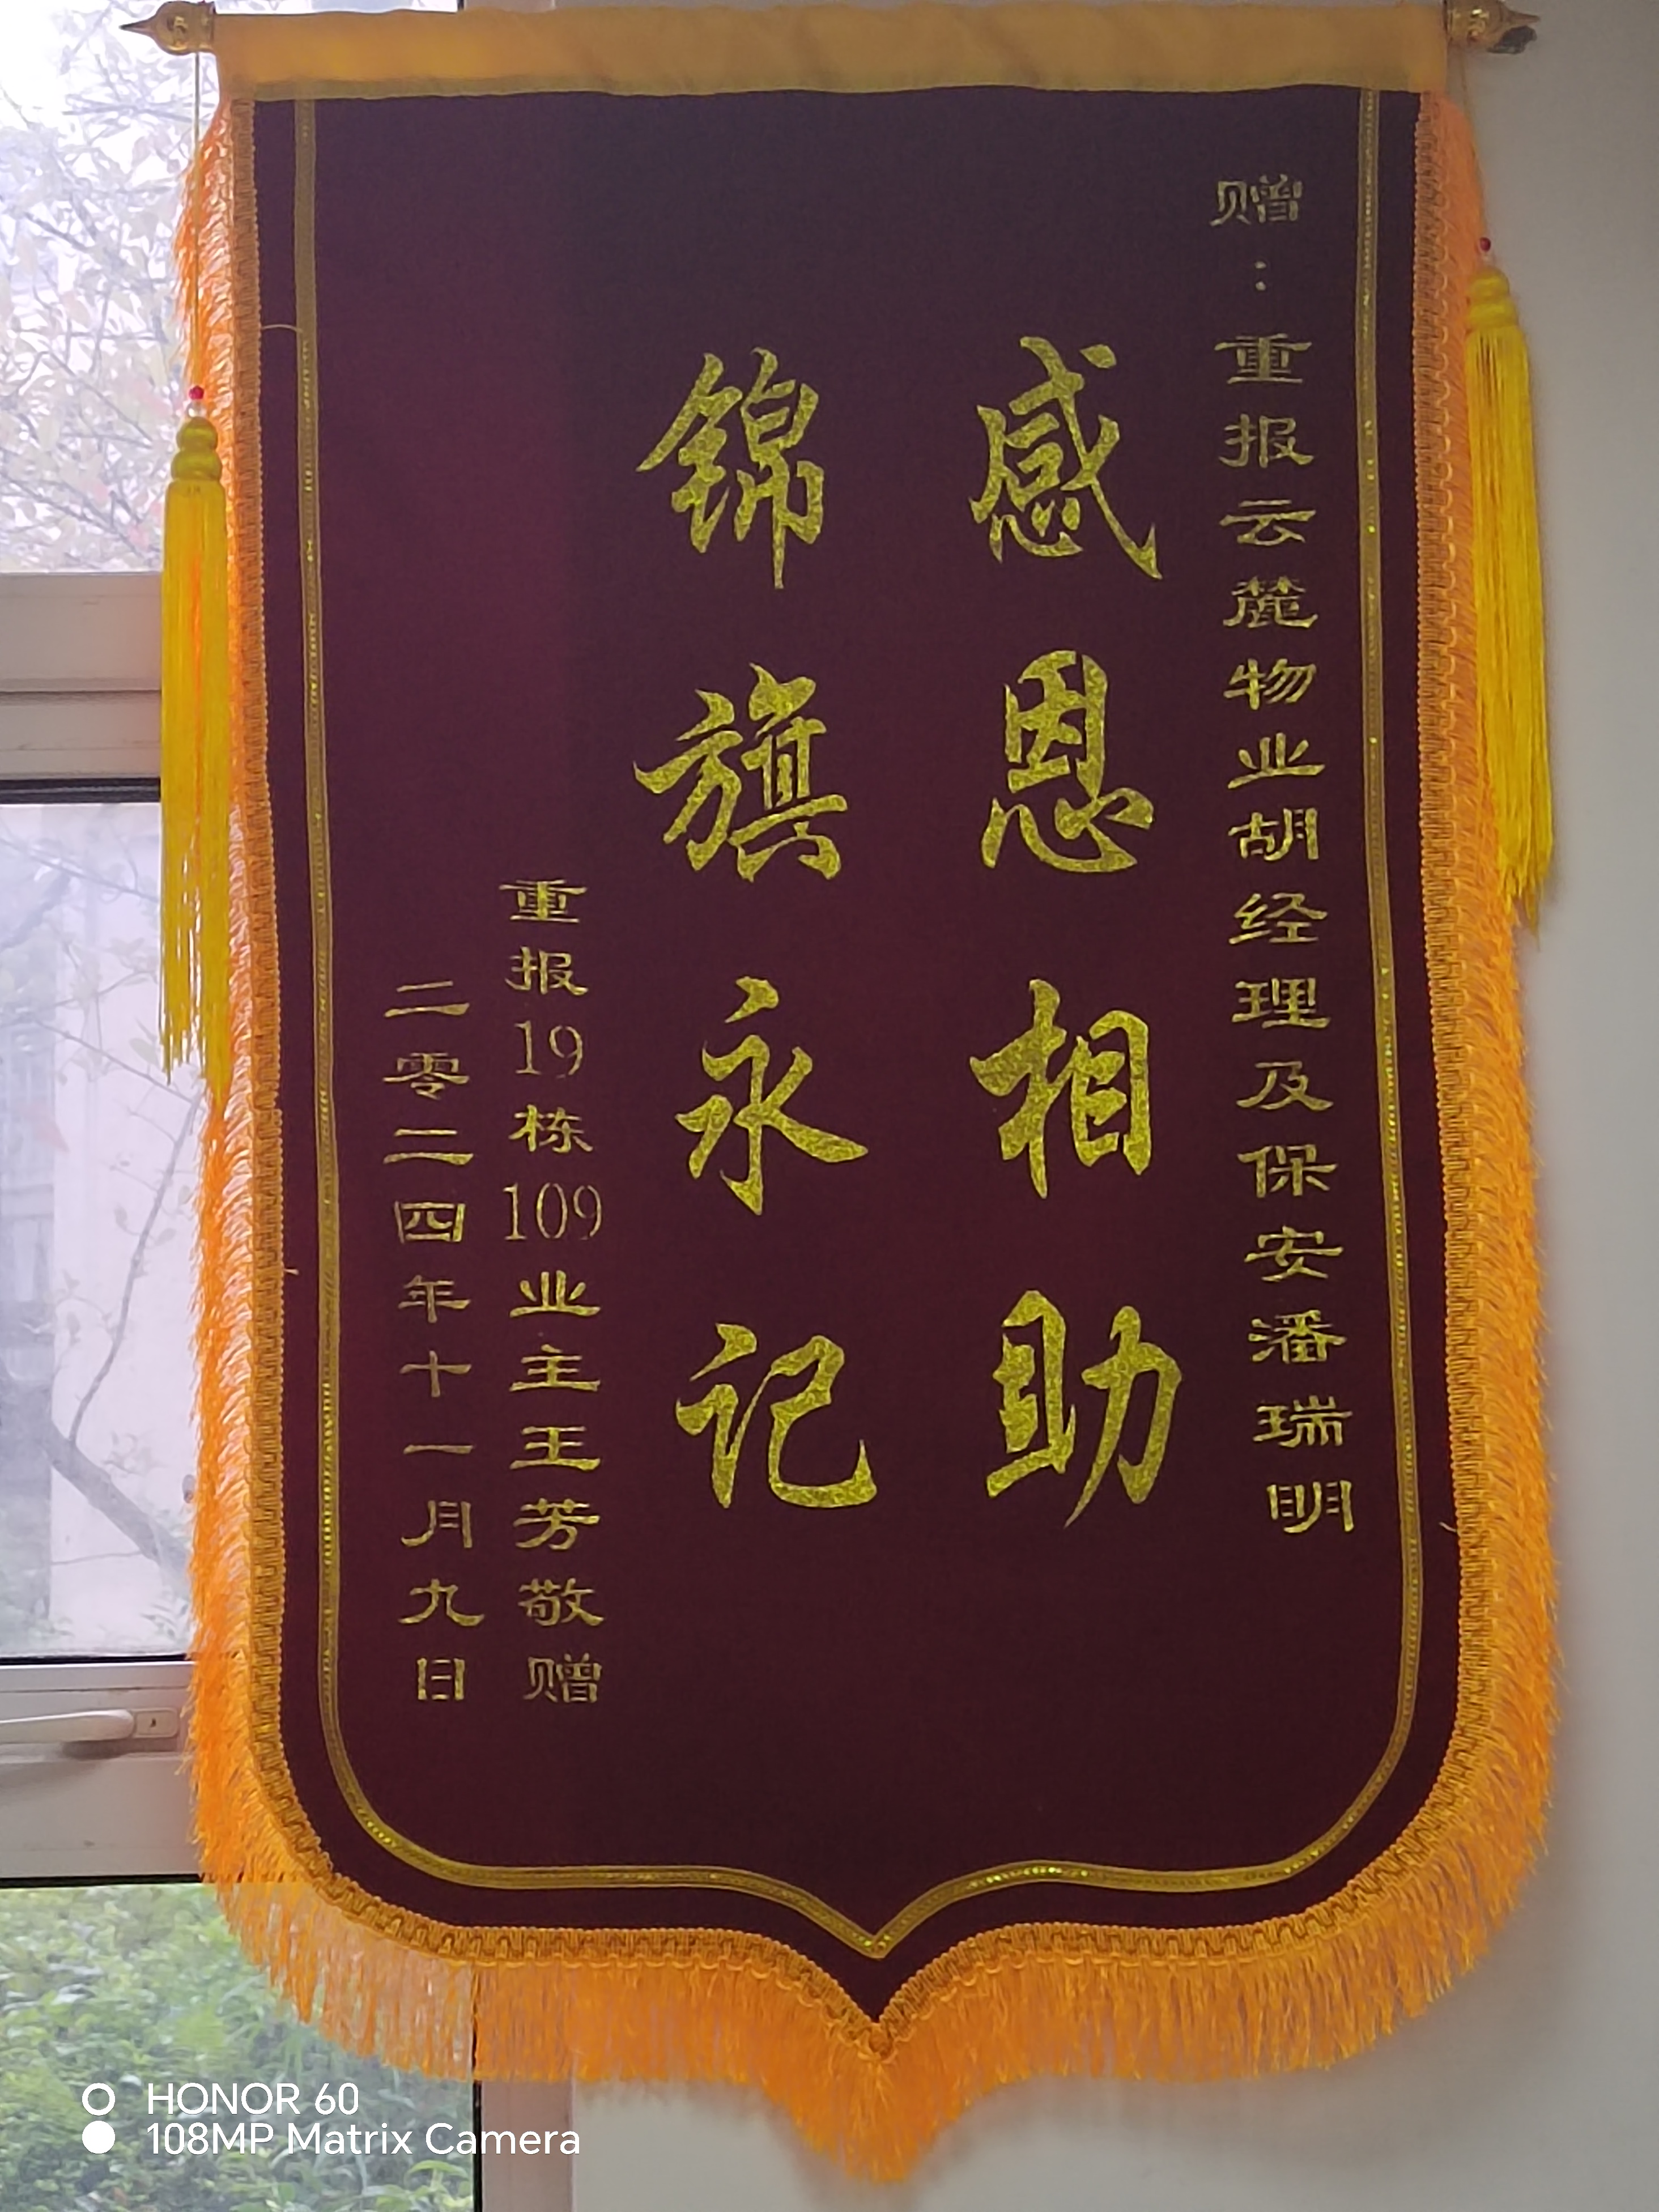 赠：重报云麓物业胡经理及保安潘瑞明
感恩相助
锦旗永记
重报19栋109业主王芳敬赠
二零二四年十一月九日
HONOR 60
108MP Matrix Camera